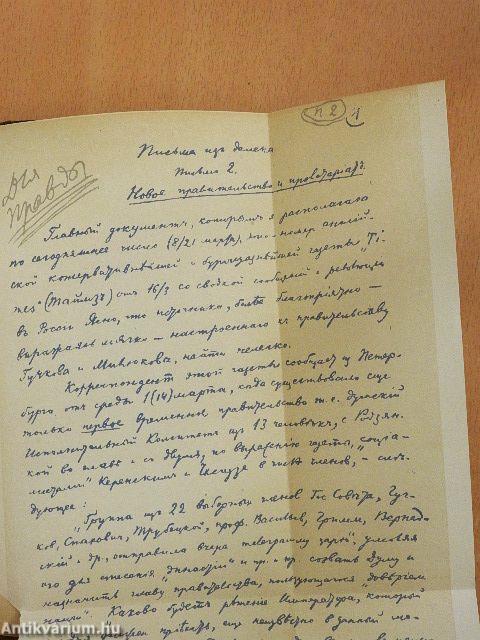 п 2 1
Для
Правды
Письма изъ далека
Письмо 2.
Новое правительство и пролетариатъ.
Главный документъ, которымъ я располагаю
по сегодняшнее число (8/21 марта), это – номеръ англій-
ской консервативнѣйшей и буржуазнѣйшей газеты „Ti-
mes" (Таймсъ) отъ 16/3 со сводкой сообщеній о революціи
въ Россіи. Ясно, что источника, болѣе благопріятно –
выражаясь мягко – настроеннаго къ правительству
Гучкова и Милюкова, найти нелегко.
Корреспондентъ этой газеты сообщаетъ из Петер-
бурга отъ среды 1 (14) марта, когда существовало еще
только первое временное правительство, т. е. думскій
Исполнительный Комитетъ изъ 13 человѣкъ, с Родзян-
кой во главѣ и съ двумя, по выраженію газеты, „соціа-
листами" Керенским и Чхеидзе въ числѣ членов, – слѣ-
дующее:
„Группа изъ 22 выборныхъ членов Гос Совѣта, Гуч-
ков, Стахович, Трубецкой, проф. Васильев, Гримм, Вернад-
скій и др., отправила вчера телеграмму царю", умоляя
его для спасенія „династіи" и пр. и пр. созвать Думу и
назначить главу правительства, пользующагося „довѣріем
націи". Каково будетъ рѣшеніе Императора, который
должен пріѣхать, еще неизвѣстно в данный мо-
Antikvarium.hu